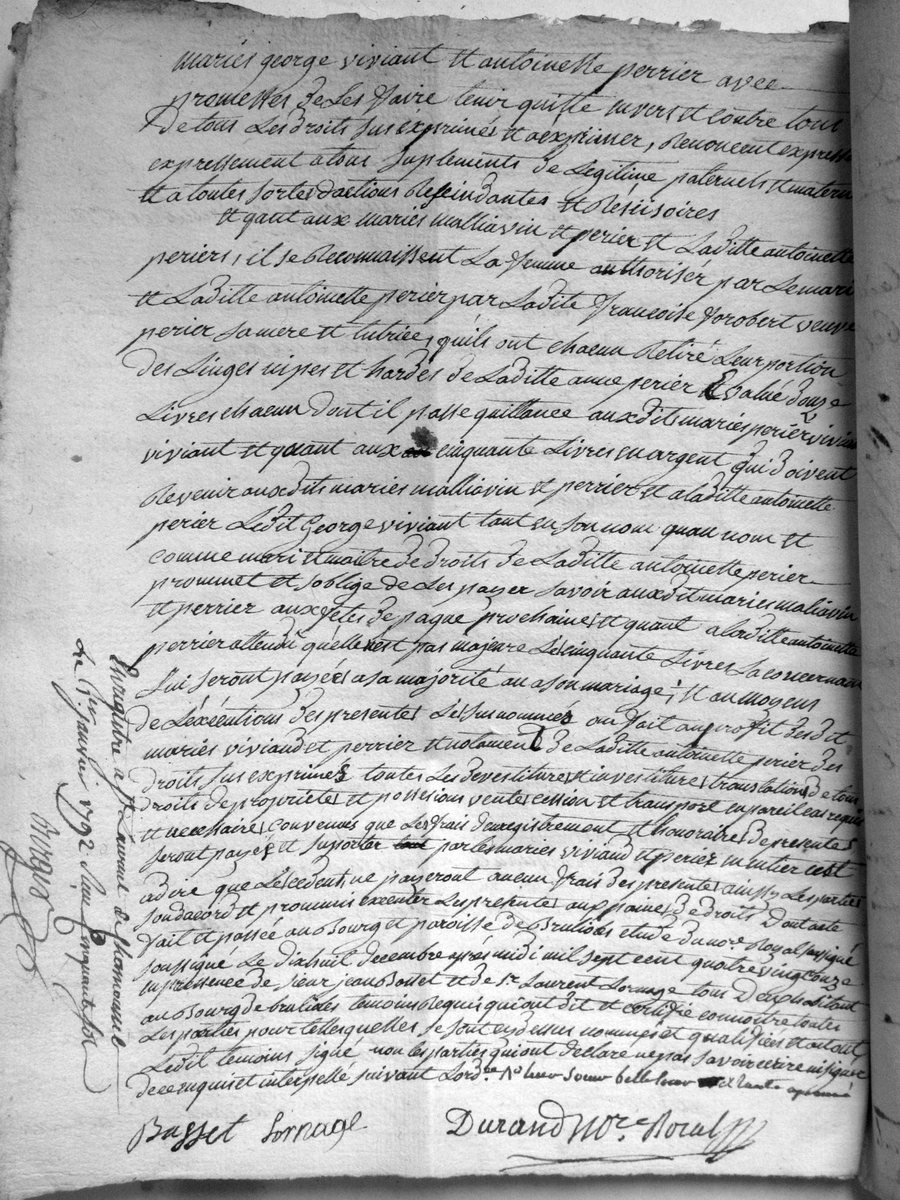 mariés george viviant et antoinette perrier avec
promesses de les faire tenir quitte envers et contre tous
de tous les droits sus exprimés et a exprimer, Renoncent expresse
expressement a tous suplements de Legitime paternels et matern
et a toutes sortes dactions Rescindantes et Resisoires
et qant aux mariés malliavin et perier et Laditte antoinette
periers, il se Reconnaissent La femme authoriser par Le mari
et Laditte antoinette perier par Ladite francoise forobert veuve
perier sa mere et tutrice, quils ont chacun Retiré Leur portion
des Linges nipes et hardes de Laditte anne perier Evalué douze
Livres chacun dont il passe quittance auxdits mariés perier viviant
viviant et quant aux cinquante Livres en argent qui doivent
Revenir auxdits mariés malliavin et perrier et a laditte antoinette
perier Ledit George viviant tant en son nom quau nom et
comme mari et maitre de droits de Laditte antoinette perier
prommet et soblige de Les payer savoir auxdit mariés maliavin
et perrier aux fetes de paque prochaines et quant a laditte antoinette
perrier attendu quelle nest pas majeure Les cinquante Livres La concernan
Lui seront payés a sa majorité ou a son mariage; et au moyens
de Léxécutions des presentes Les sus nommés on fait au profit desdit
mariés viviand et perrier et notament de Laditte antoinette perier des
droits sus exprimés toutes Les devestitures et investitures translations de tous
droits de proprietés et possesions vente cession et transport en pareil cas requis
et necessaires convenus que Les frais denregistrement et honoraires des presentes
seront payés et suporter par les mariés viviand et perier en entier cest
adire que Les cedents ne payeront aucun frais des presentes ainssy Les parties
son dacord et promis executer Les presentes aux paines de droits Dont acte
fait et passée au bourg et paroisse de Brulioles etude du no.re Royal sousigné
soussigné Le dixhuit decembre après midi mil sept cent quatre vingt onze
en presence du sieur jean Basset et de s.r Laurent Lornage tous Deux habitant
au bourg de brulioles temoins Requis qui ont dit et certifié connoitre toutes
Les parties pour telles quelles se sont cydessus nommés et qualifiées et ont
Ledit temoins signé non les parties qui ont declaré ne pas savoir ecrire ni signer
de ce enquis et interpellé suivant Lord.ce
Basset Lornage Durand No.re Royal
Enregistré a St Laurent de Chamousset
Le janvier 1792. Reçu cinquante sols